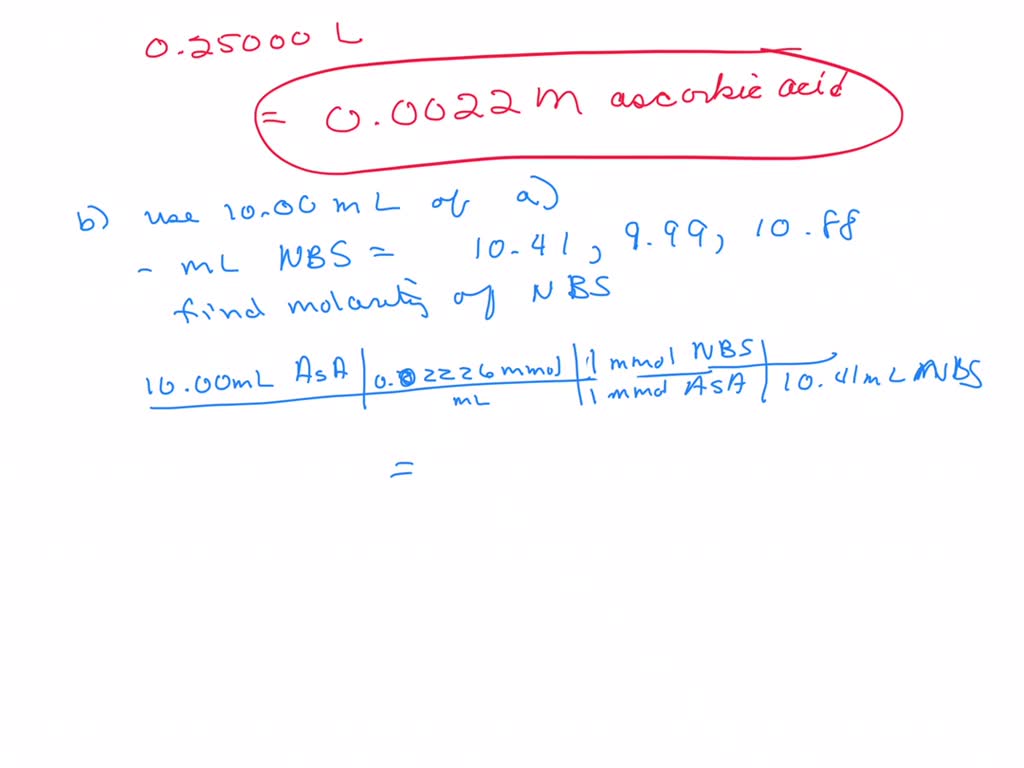 0.25000 L
= 0.0022 M ascorbic acid
b) use 10.00 mL of a)
- mL NBS = 10.41, 9.99, 10.88
find molarity of NBS
10.00mL AsA | 0.02226 mmol | 1 mmol NBS |
mL | 1 mmol AsA | 10.41mL NBS
=